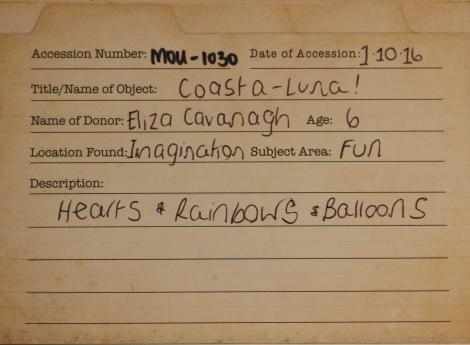 Accession Number: MOU-1030 Date of Accession: 1.10.16
Title/Name of Object: Coasta-Luna!
Name of Donor: Eliza Cavanagh Age: 6
Location Found: Imagination Subject Area: Fun
Description:
Hearts & Rainbows & Balloons